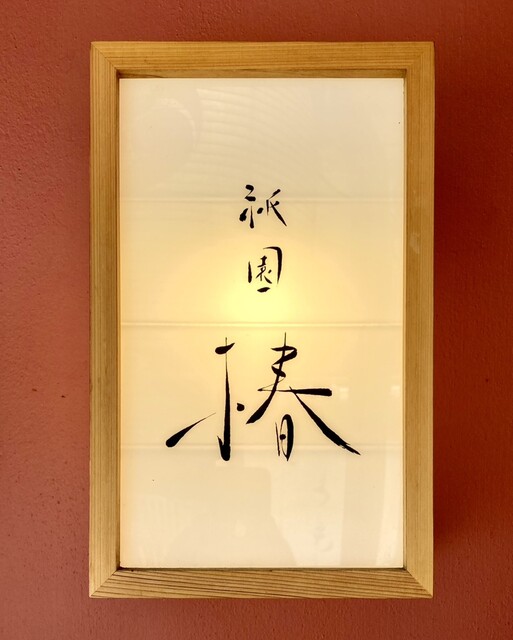 祇園
椿